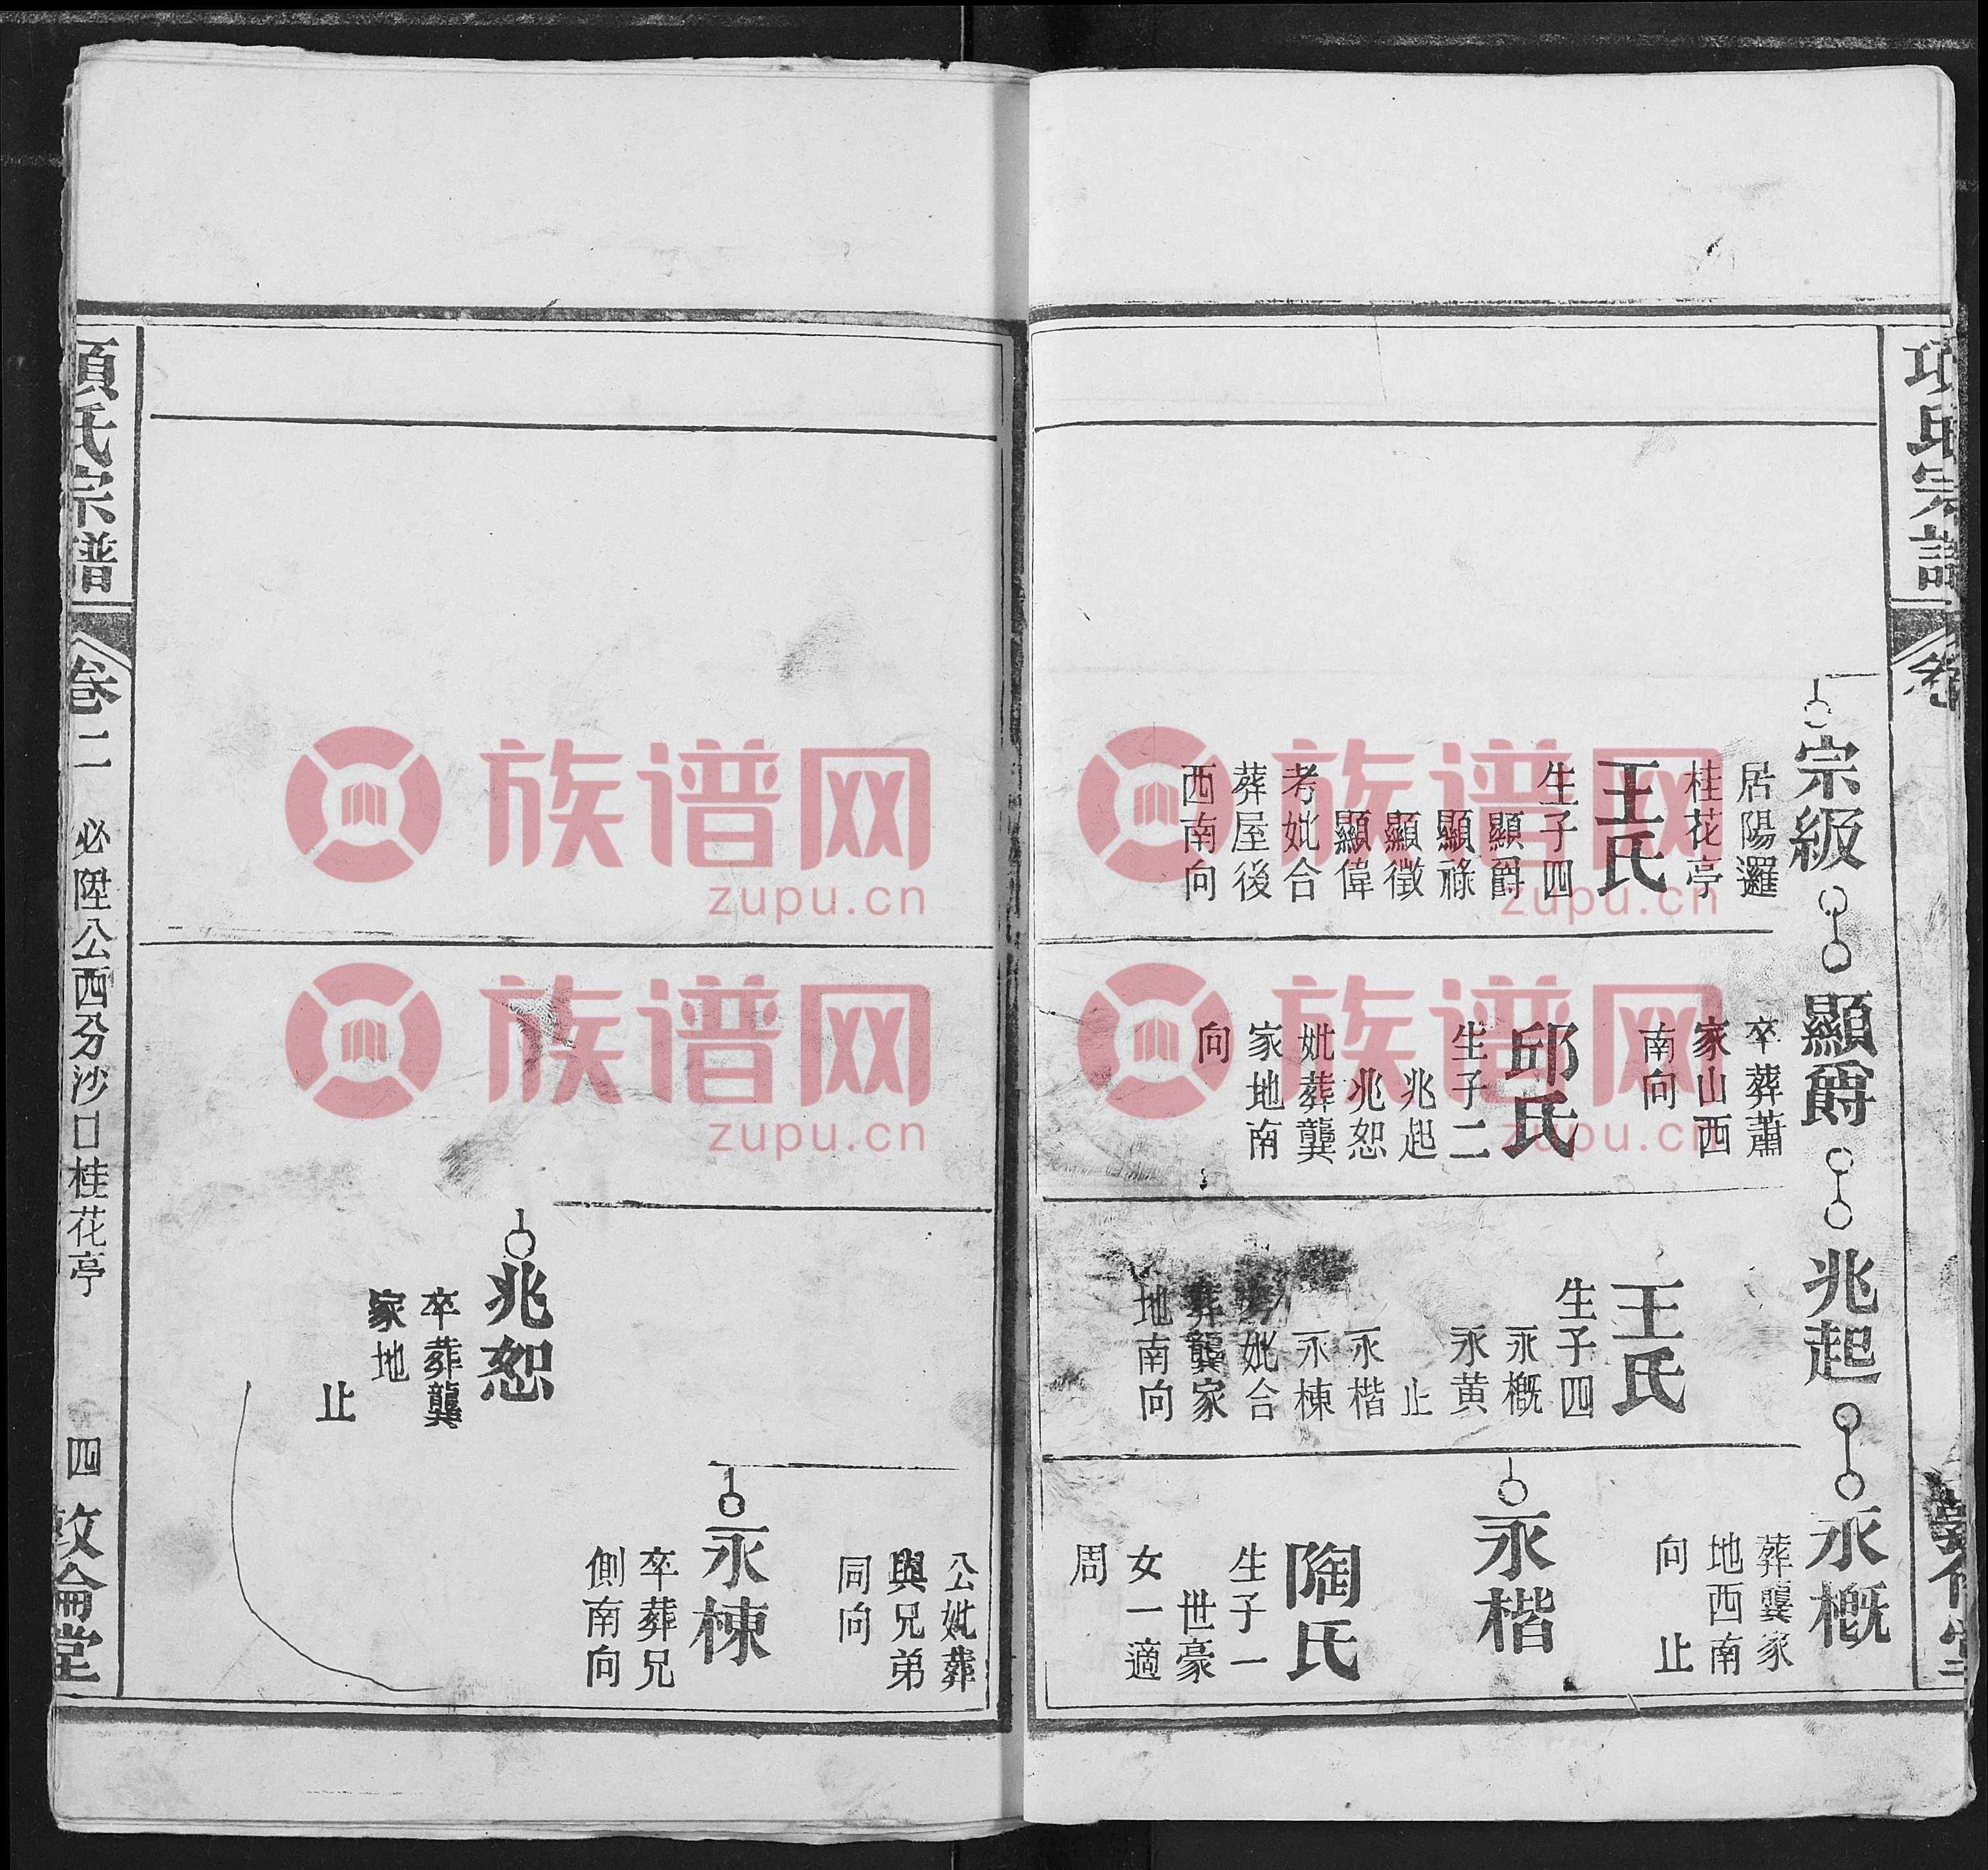 項氏宗譜
卷
宗級
居陽邏
桂花亭
王氏
生子四
顯爵
顯祿
顯徵
顯偉
考妣合
葬屋後
西南向
顯爵
卒葬蕭
家山西
南向
邱氏
生子二
兆起
兆恕
妣葬龔
家地南
向
兆起
王氏
生子四
永概
永黄
止
永楷
永棟
妣合
葬龔家
地南向
永概
葬龔家
地西南
向 止
永楷
陶氏
生子一
世豪
女一適
周
公妣葬
與兄弟
同向
永棟
卒葬兄
側南向
兆恕
卒葬龔
家地
止
項氏宗譜
卷二
必陞公西分沙口桂花亭
四
敦倫堂
族谱网
zupu.cn
族谱网
zupu.cn
族谱网
zupu.cn
族谱网
zupu.cn